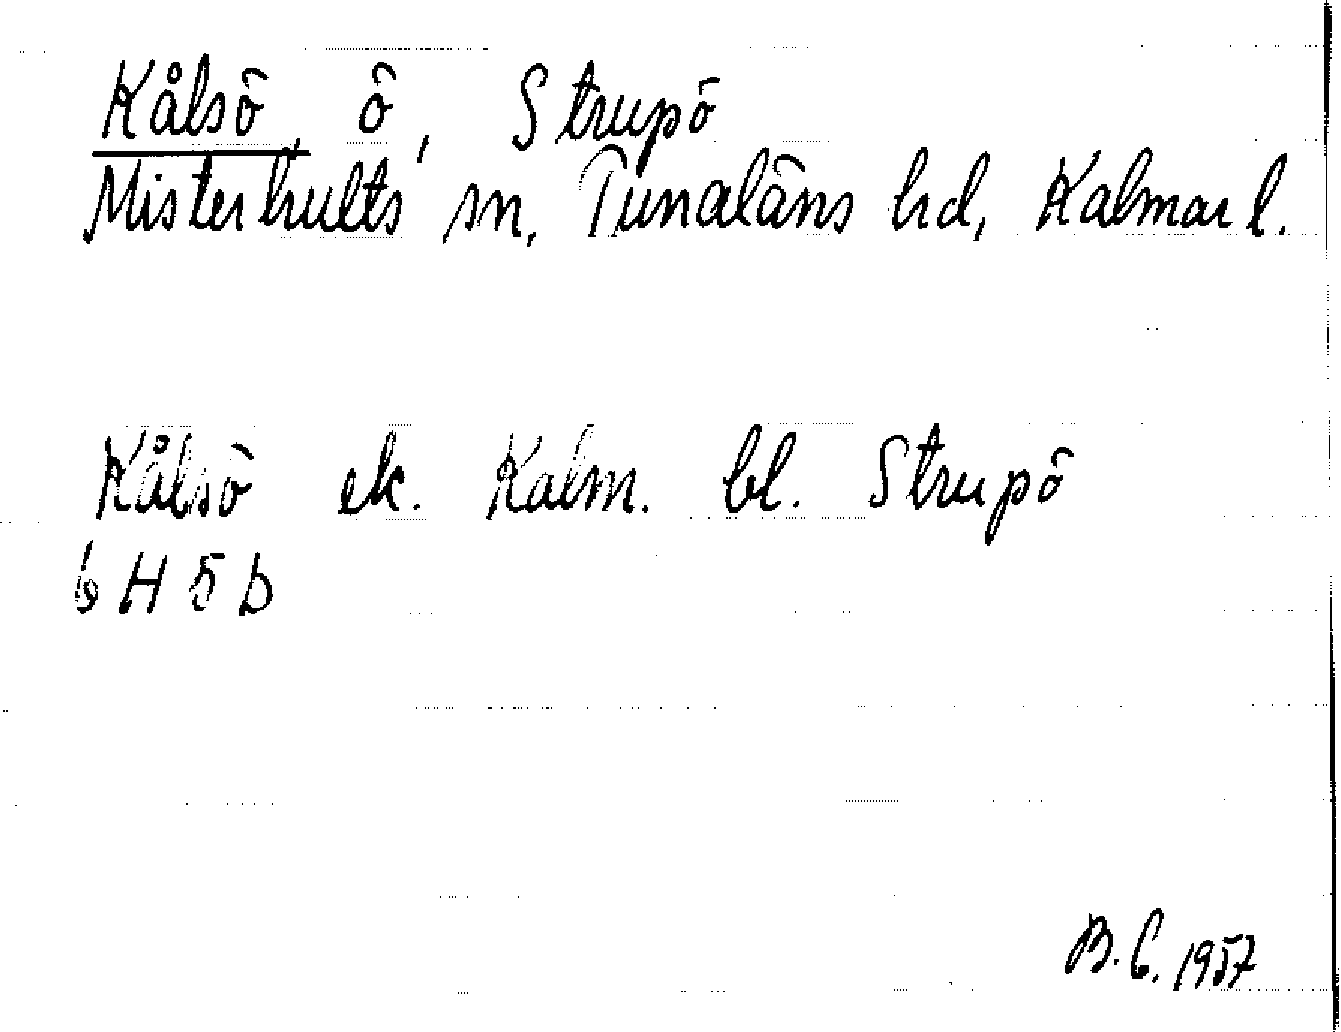 Kålsö, ö, Strupö
Misterhults sn, Tunaläns hd, Kalmar l.
Kålsö ek. Kalm. bl. Strupö
6 H 5 b
B. C. 1957